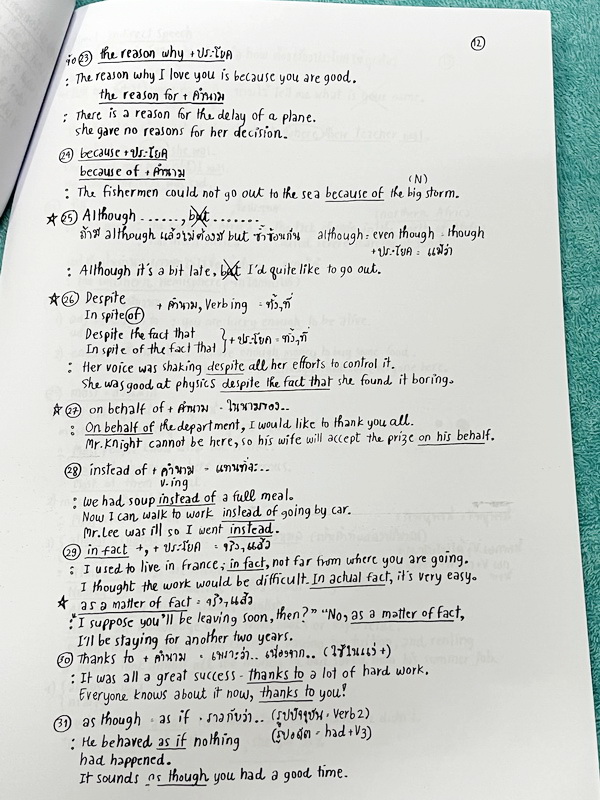 12
ข้อ 23 the reason why + ประโยค
: The reason why I love you is because you are good.
the reason for + คำนาม
: There is a reason for the delay of a plane.
she gave no reasons for her decision.
24 because + ประโยค
because of + คำนาม
(N)
: The fishermen could not go out to the sea because of the big storm.
☆ 25 Although ......, but .......
ถ้ามี although แล้วไม่ต้องมี but ซ้ำซ้อนกัน although = even though = though
+ ประโยค = แม้ว่า
: Although it's a bit late, but I'd quite like to go out.
☆ 26 Despite
In spite of
+ คำนาม, Verb ing = ทั้งๆที่
Despite the fact that
In spite of the fact that
} + ประโยค = ทั้งๆที่
: Her voice was shaking despite all her efforts to control it.
She was good at physics despite the fact that she found it boring.
☆ 27 on behalf of + คำนาม - ในนามของ..
: On behalf of the department, I would like to thank you all.
Mr.Knight cannot be here, so his wife will accept the prize on his behalf.
28 instead of + คำนาม = แทนที่จะ..
V.ing
: We had soup instead of a full meal.
Now I can walk to work instead of going by car.
Mr.Lee was ill so I went instead.
29 in fact +, + ประโยค = จริงๆแล้ว
: I used to live in France; in fact, not far from where you are going.
I thought the work would be difficult. In actual fact, it's very easy.
★ as a matter of fact = จริงๆแล้ว
: "I suppose you'll be leaving soon, then?" "No, as a matter of fact,
I'll be staying for another two years.
30 Thanks to + คำนาม = เพราะว่า.. เนื่องจาก.. (ใช้ในแง่ +)
: It was all a great success - thanks to a lot of hard work.
Everyone knows about it now, thanks to you!
31 as though = as if = ราวกับว่า.. (รูปปัจจุบัน = Verb 2)
(รูปอดีต = had + V3)
: He behaved as if nothing
had happened.
It sounds as though you had a good time.